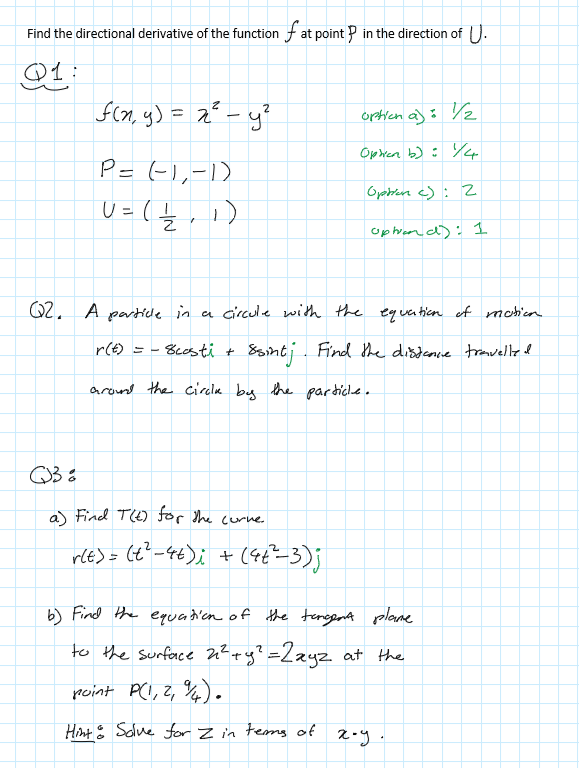 Find the directional derivative of the function f at point P in the direction of U.
Q1:
f(x, y) = x² - y²
option a): 1/2
Option b): 1/4
P = (-1, -1)
Option c): 2
U = (1/2, 1)
option d): 1
Q2. A particle in a circule with the equation of motion
r(t) = - 8costi + 8sintj. Find the distance travelled
around the circle by the particle.
Q3:
a) Find T(t) for the curve
r(t) = (t²-4t)i + (4t²-3)j
b) Find the equation of the tangent plane
to the surface x²+y²=2xyz at the
point P(1, 2, 9/4).
Hint: Solve for z in terms of x-y.